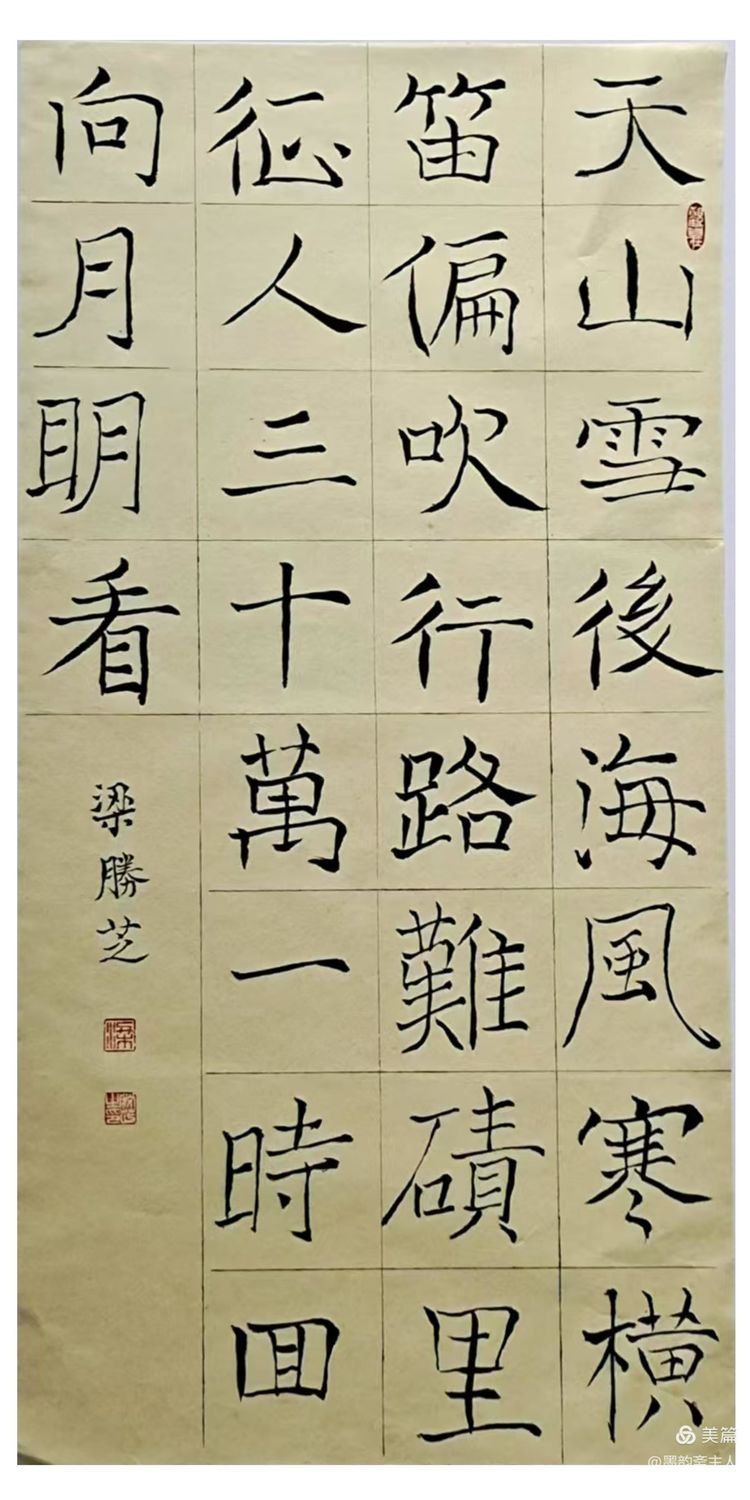 天山雪後海風寒横
笛偏吹行路難磧里
征人三十萬一時回
向月眀看
梁勝芝
美篇
@墨韵斋主人